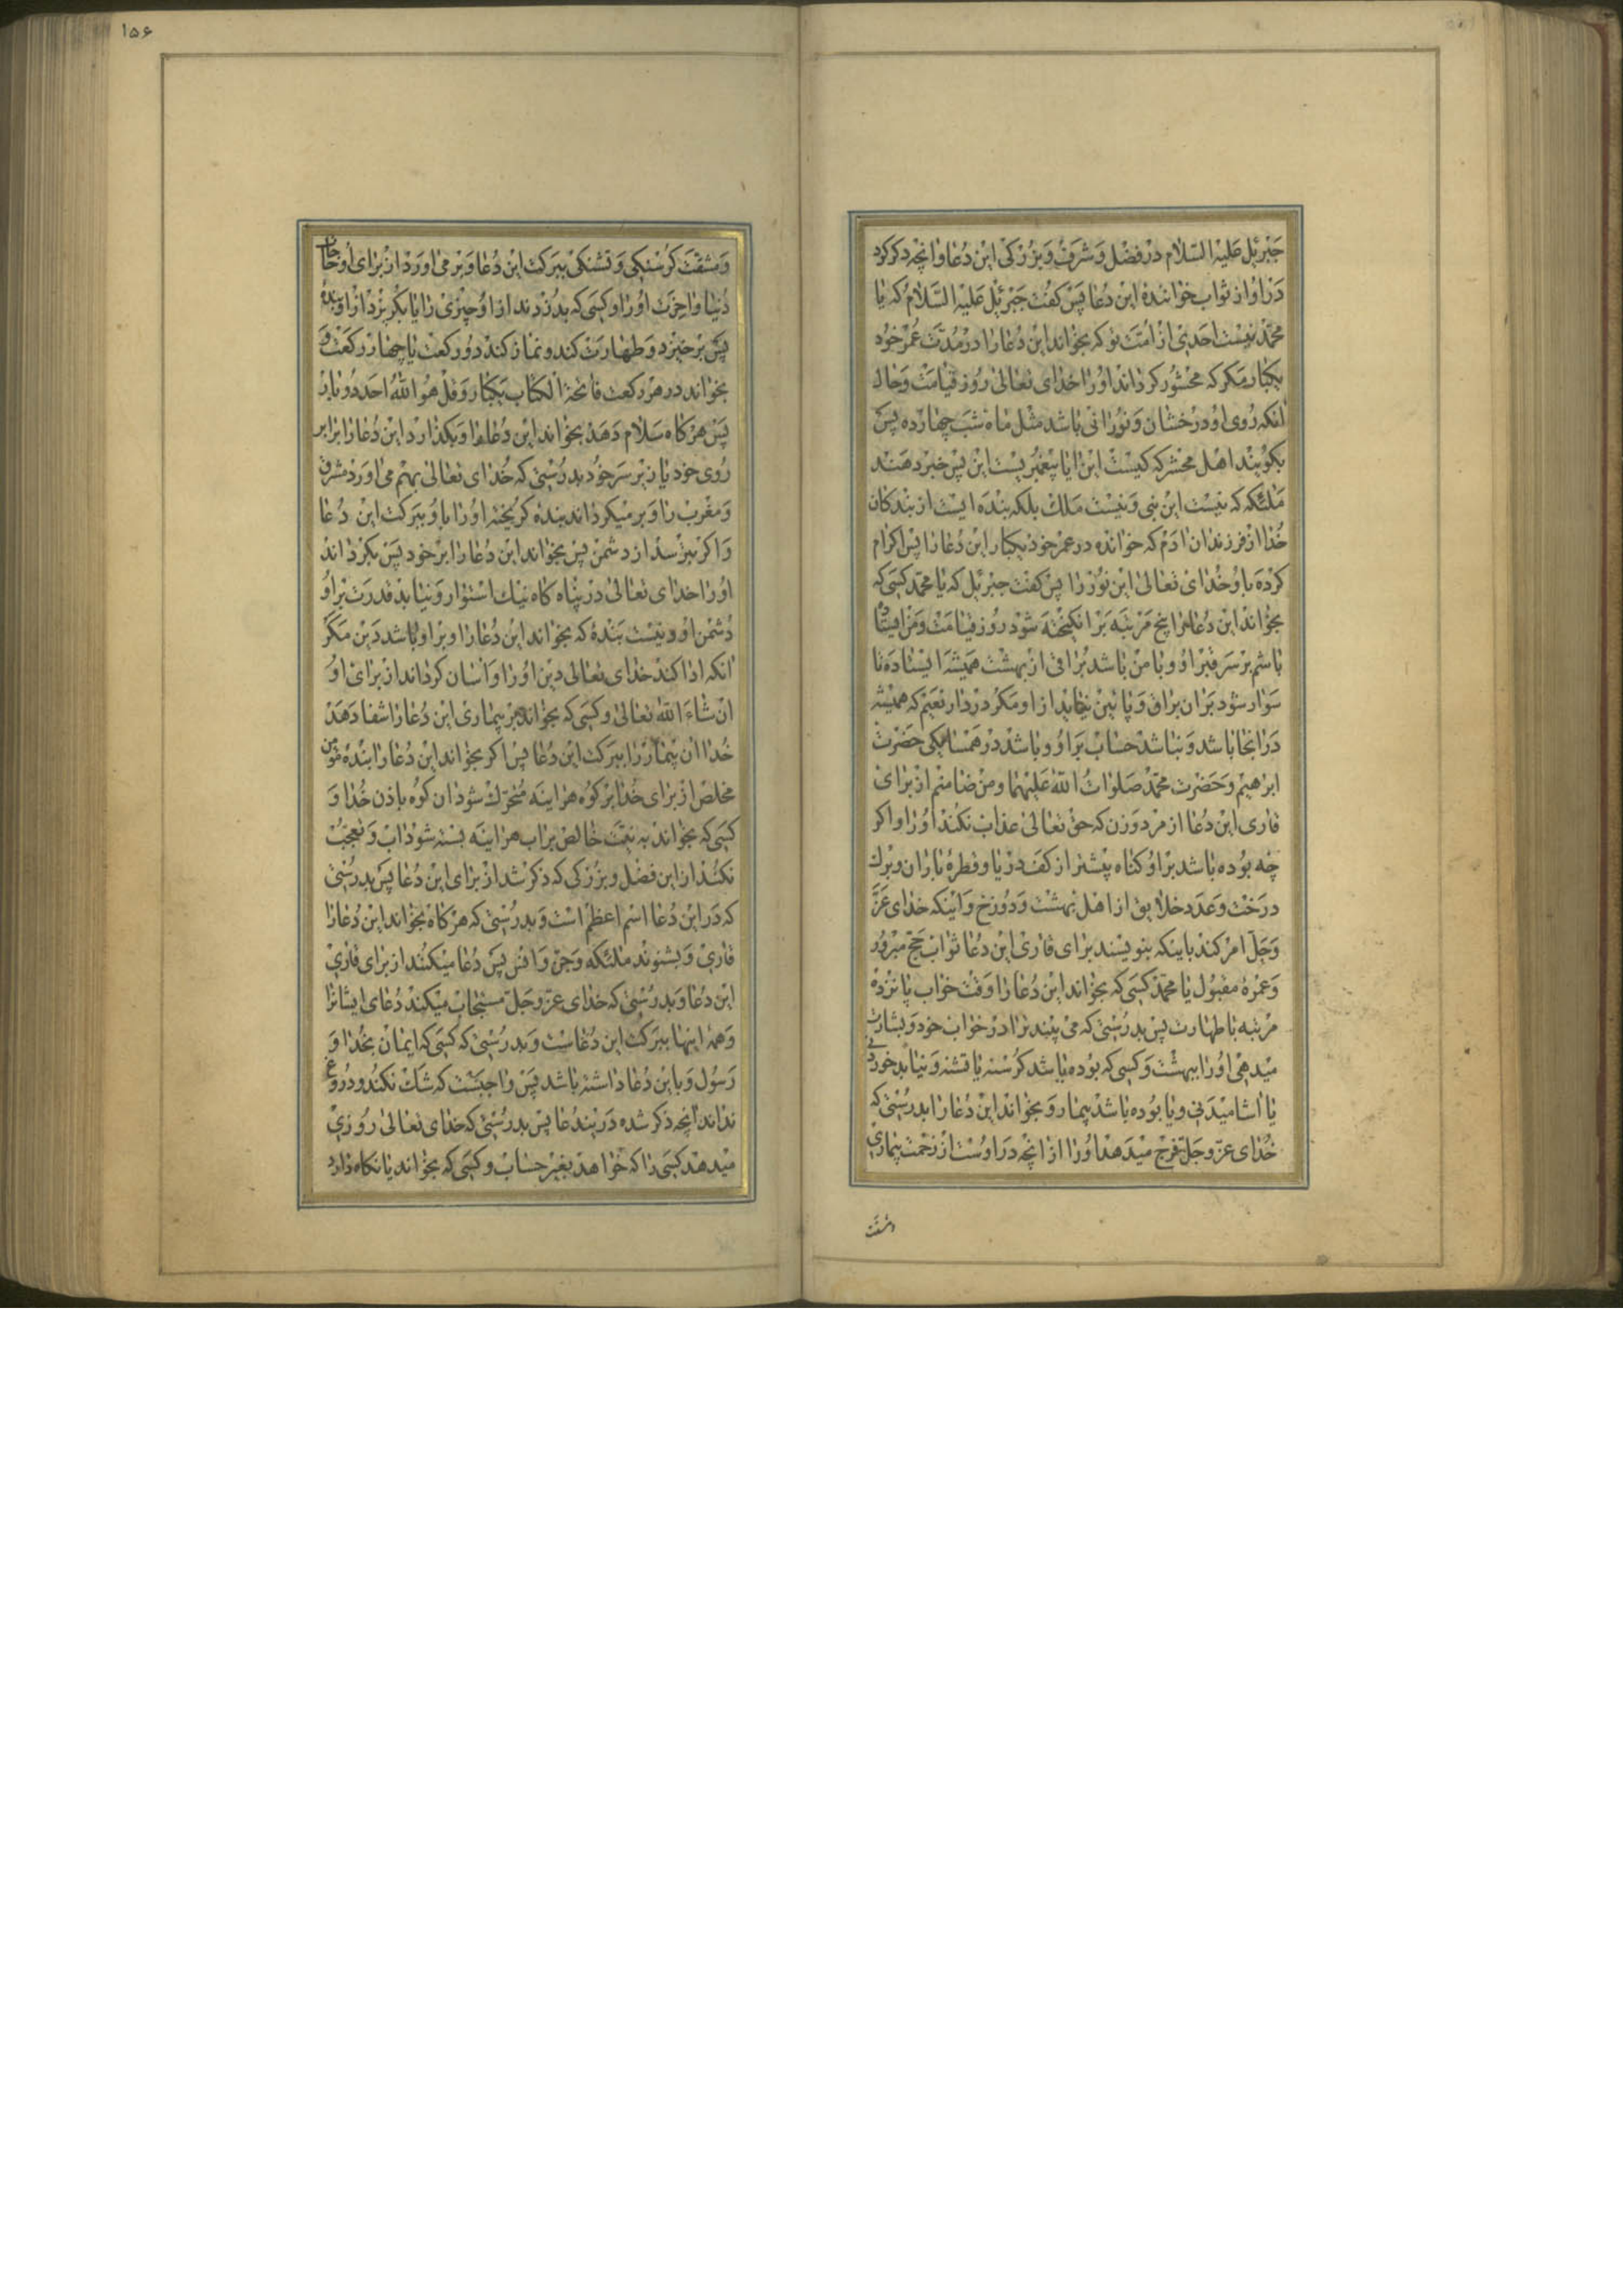 جبرئیل علیه السلام در فضل و شرف و بزرکی این دعا و انچه ذکر کرد
در او از ثواب خوانندهٔ این دعا پس کفت جبرئیل علیه السلام که یا
محمد نیست احدی از امت تو که بخواند این دعا را در مدت عمر خود
یکبار مکر که محشور کرداند او را خدای تعالی روز قیامت و حال
انکه روی او درخشان و نورانی باشد مثل ماه شب چهارده پس
بکویند اهل محشر که کیست این ایا پیغمبریست این پس خبر دهند
ملئکه که نیست این نبی و نیست ملک بلکه بنده ایست از بندکان
خدا از فرزندان ادم که خوانده در عمر خود یکبار این دعا را پس اکرام
کرده باو خدای تعالی این نور را پس کفت جبرئیل که یا محمد کسی که
بخواند این دعا را پنج مرتبه برانکیخته شود روز قیامت و من ایستاده
باشم بر سر قبر او و با من باشد براقی از بهشت همیشه ایستاده تا
سوار شود بران براق و پائین نیاید از او مکر در دار نعیم که همیشه
در انجا باشد و نباشد حساب بر او و باشد در همسایکی حضرت
ابرهیم و حضرت محمد صلوات الله علیهما و من ضامنم از برای
قاری این دعا از مرد و زن که حق تعالی عذاب نکند او را و اکر
چه بوده باشد بر او کناه بیشتر از کف دریا و قطرهٔ باران و برک
درخت و عدد خلایق از اهل بهشت و دوزخ و اینکه خدای عز
و جل امر کند باینکه بنویسند برای قاری این دعا ثواب حج مبرور
و عمرهٔ مقبول یا محمد کسی که بخواند این دعا را وقت خواب پانزده
مرتبه با طهارت پس بدرستی که می بیند ترا در خواب خود و بشارت
میدهی او را ببهشت و کسی که بوده باشد کرسنه یا تشنه و نیابد خوردنی
یا اشامیدنی و یا بوده باشد بیمار و بخواند این دعا را بدرستی که
خدای عز و جل فرج میدهد او را از انچه در اوست از زحمت بیماری
و مشقت
۱۵۶
و مشقت کرسنکی و تشنکی ببرکت این دعا و بر می اورد از برای او حاجات
دنیا و اخرت او را و کسی که بدزدند از او چیزی را یا بکریزد از او بندهٔ
پس برخیزد و طهارت کند و نماز کند دو رکعت یا چهار رکعت و
بخواند در هر رکعت فاتحة الکتاب یکبار و قل هو الله احد دو بار
پس هرکاه سلام دهد بخواند این دعا را و بکذارد این دعا را برابر
روی خود یا زیر سر خود بدرستی که خدای تعالی بهم می اورد مشرق
و مغرب را و بر میکرداند بنده کریخته او را باو ببرکت این دعا
و اکر بترسد از دشمن پس بخواند این دعا را بر خود پس بکرداند
او را خدای تعالی در پناه کاه نیک استوار و نیابد قدرت بر او
دشمن او و نیست بندهٔ که بخواند این دعا را و بر او باشد دین مکر
انکه ادا کند خدای تعالی دین او را و اسان کرداند از برای او
ان شاء الله تعالی و کسی که بخواند بر بیماری این دعا را شفا دهد
خدا ان بیمار را ببرکت این دعا پس اکر بخواند این دعا را بندهٔ مؤمن
مخلص از برای خدا بر کوه هراینه متحرک شود ان کوه باذن خدا و
کسی که بخواند به نیت خالص بر اب هراینه بسته شود اب و تعجب
نکنند از این فضل و بزرکی که ذکر شد از برای این دعا پس بدرستی
که در این دعا اسم اعظم است و بدرستی که هرکاه بخواند این دعا را
قاری و بشنوند ملئکه و جن و انس پس دعا میکنند از برای قاری
این دعا و بدرستی که خدای عز و جل مستجاب میکند دعای ایشانرا
و همه اینها ببرکت این دعاست و بدرستی که کسی که ایمان بخدا و
رسول و باین دعا داشته باشد پس واجبست که شک نکند و دروغ
نداند انچه ذکر شده در این دعا پس بدرستی که خدای تعالی روزی
میدهد کسی را که خواهد بغیر حساب و کسی که بخواند یا نکاه دارد